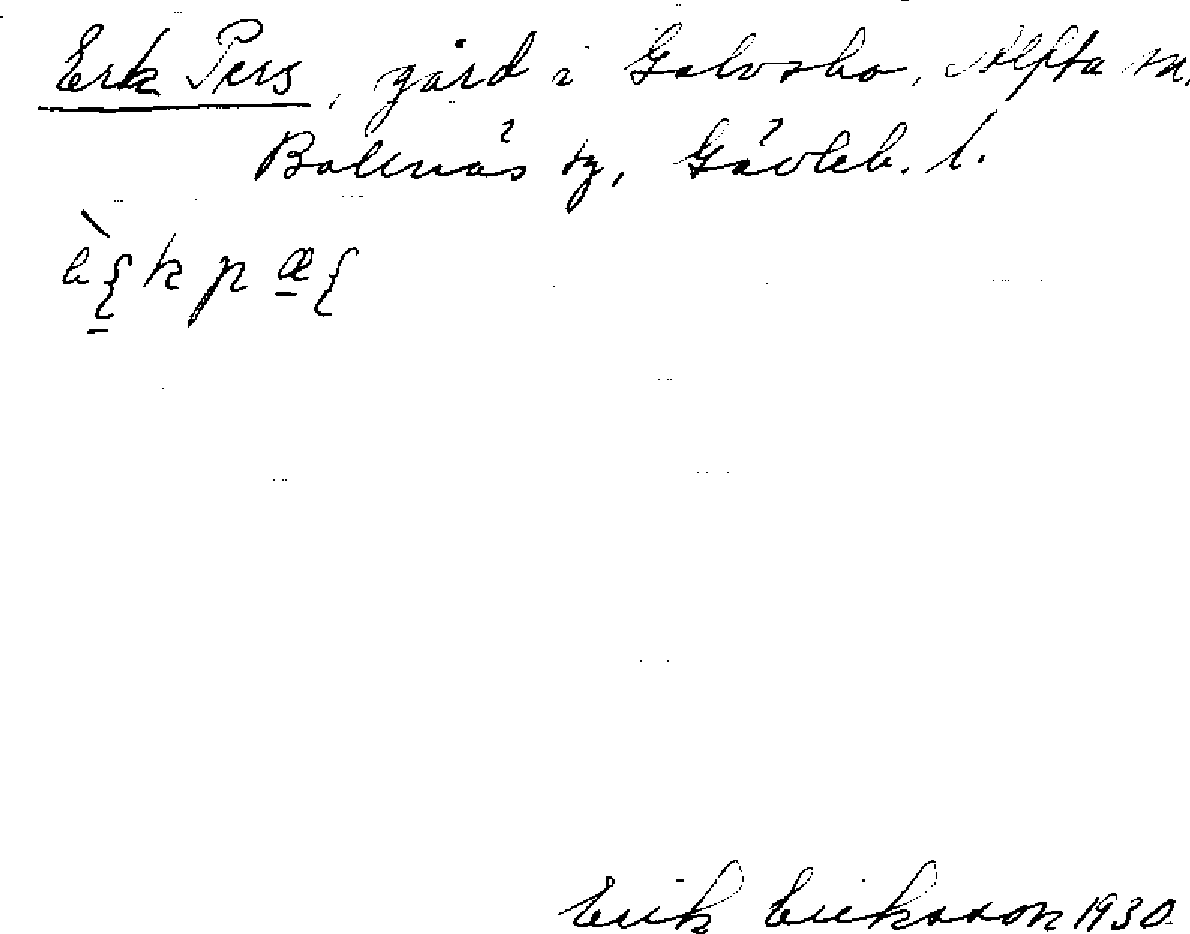 Erk Pers, gård i Galvsbo, Alfta sn.
Bollnäs tg, Gävleb. l.
Erik Eriksson 1930